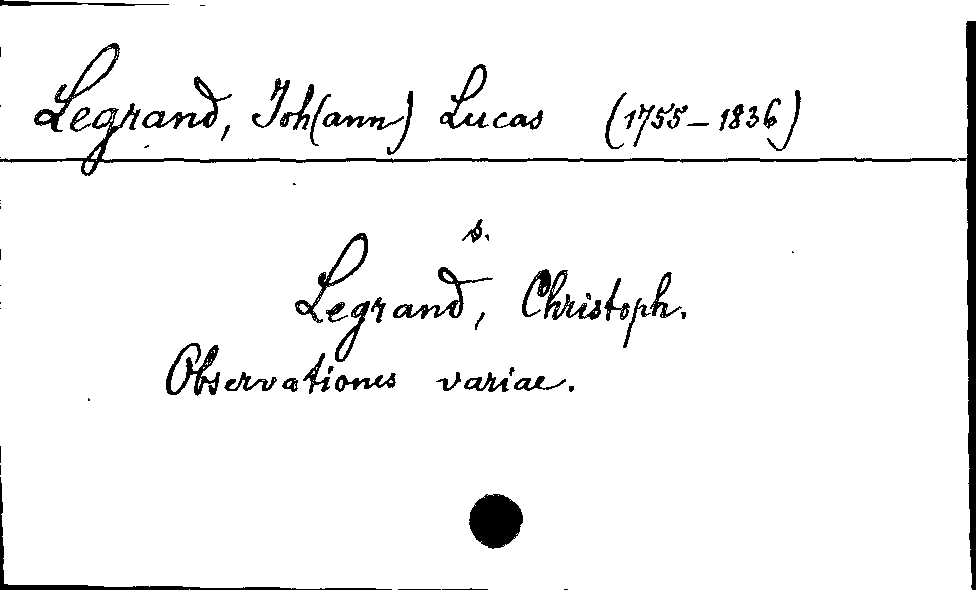 Legrand, Joh(ann) Lucas (1755–1836)
s.
Legrand, Christoph.
Observationes variae.